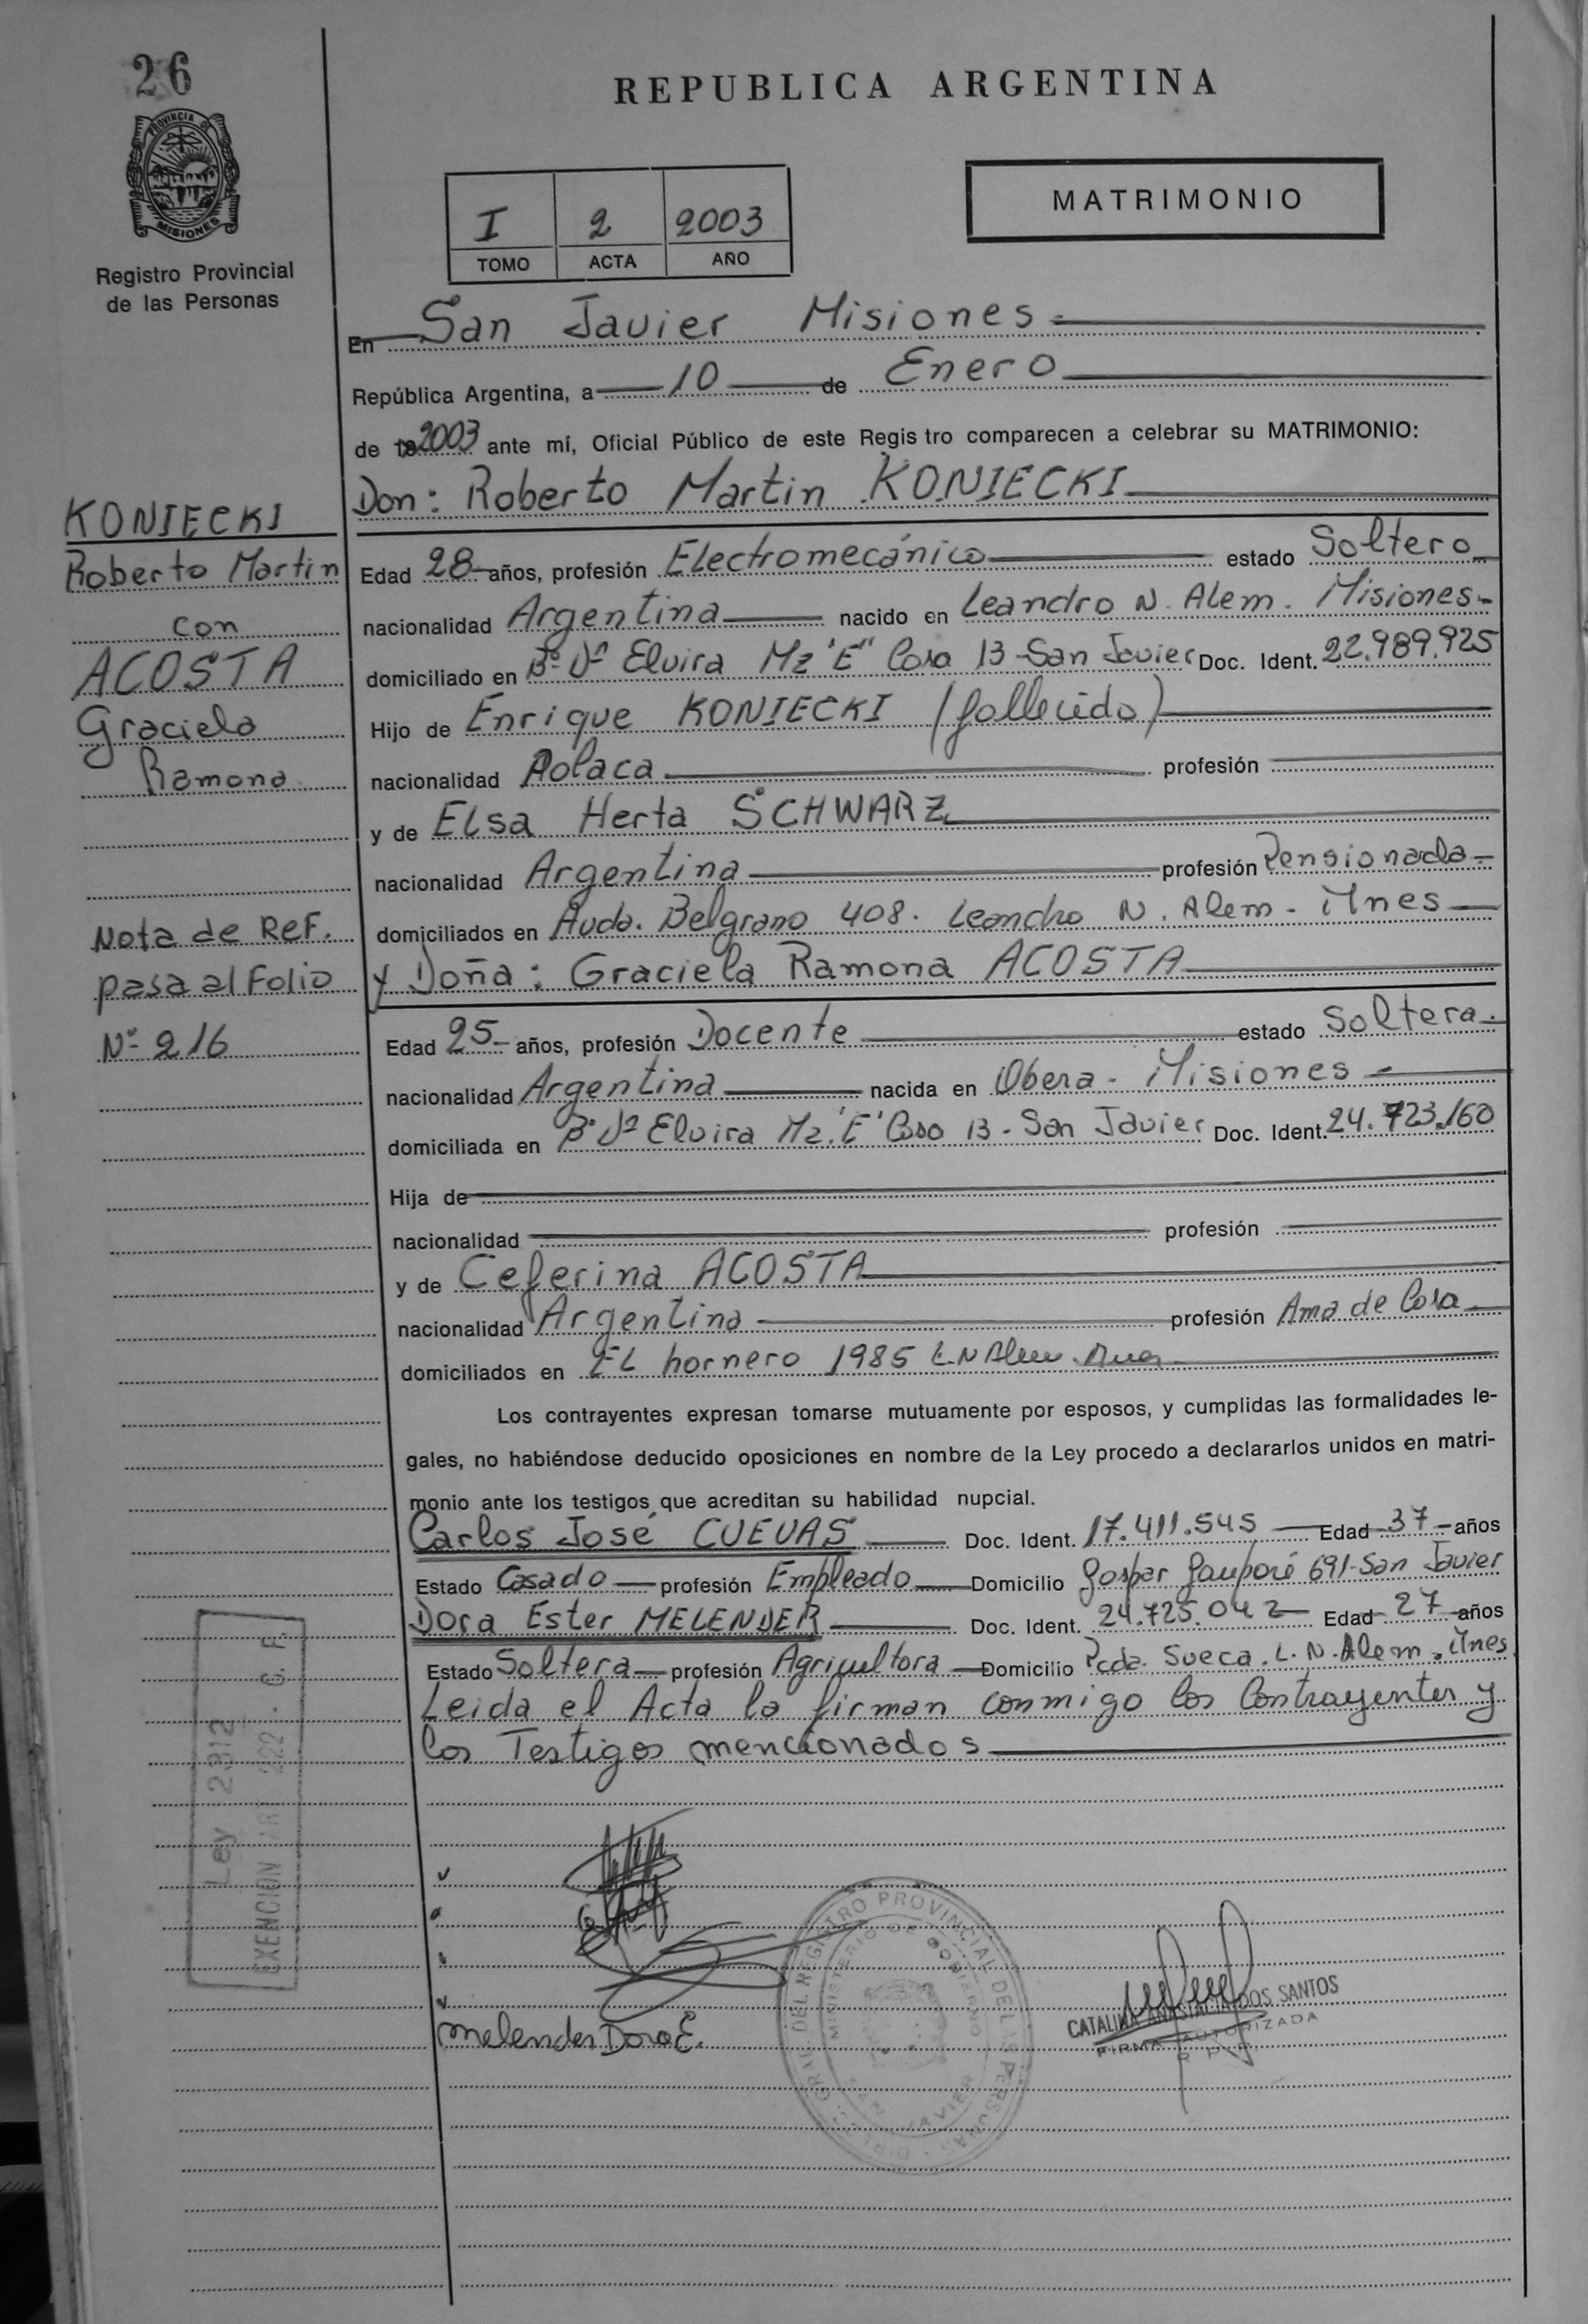 26
REPUBLICA ARGENTINA
PROVINCIA DE
MISIONES
Registro Provincial
de las Personas
I 2 2003
TOMO ACTA AÑO
MATRIMONIO
En San Javier Misiones
República Argentina, a 10 de Enero
de 2003 ante mí, Oficial Público de este Regis tro comparecen a celebrar su MATRIMONIO:
Don: Roberto Martin KONIECKI
KONIECKI
Roberto Martin
con
ACOSTA
Graciela
Ramona
Nota de Ref.
pasa al Folio
Nº 216
Edad 28 años, profesión Electromecánico estado Soltero
nacionalidad Argentina nacido en Leandro N. Alem. Misiones
domiciliado en Bº Vª Elvira Mz "E" Casa 13 - San Javier Doc. Ident. 22.989.925
Hijo de Enrique KONIECKI (fallecido)
nacionalidad Polaca profesión
y de Elsa Herta SCHWARZ
nacionalidad Argentina profesión Pensionada
domiciliados en Avda. Belgrano 408. Leandro N. Alem - Mnes
y Doña: Graciela Ramona ACOSTA
Edad 25 años, profesión Docente estado Soltera
nacionalidad Argentina nacida en Obera - Misiones
domiciliada en Bº Vª Elvira Mz. "E" Casa 13 - San Javier Doc. Ident. 24.723.160
Hija de
nacionalidad profesión
y de Ceferina ACOSTA
nacionalidad Argentina profesión Ama de Casa
domiciliados en El hornero 1985 L.N Alem.
Los contrayentes expresan tomarse mutuamente por esposos, y cumplidas las formalidades le-
gales, no habiéndose deducido oposiciones en nombre de la Ley procedo a declararlos unidos en matri-
monio ante los testigos que acreditan su habilidad nupcial.
Carlos José CUEVAS Doc. Ident. 17.411.545 Edad 37 años
Estado Casado profesión Empleado Domicilio Gaspar 691 - San Javier
Dora Ester MELENDER Doc. Ident. 24.725.042 Edad 27 años
Estado Soltera profesión Agricultora Domicilio Pcda. Sueca. L. N. Alem. Mnes
Leida el Acta la firman conmigo los Contrayentes y
los Testigos mencionados
Ley 2312
EXENCION ART 222 - C. F.
Melender Dora E.
GRAL. DEL REGISTRO PROVINCIAL DE LAS PERSONAS
MINISTERIO DE GOBIERNO
SAN JAVIER
CATALINA ANASTACIA DOS SANTOS
FIRMA AUTORIZADA
R P P